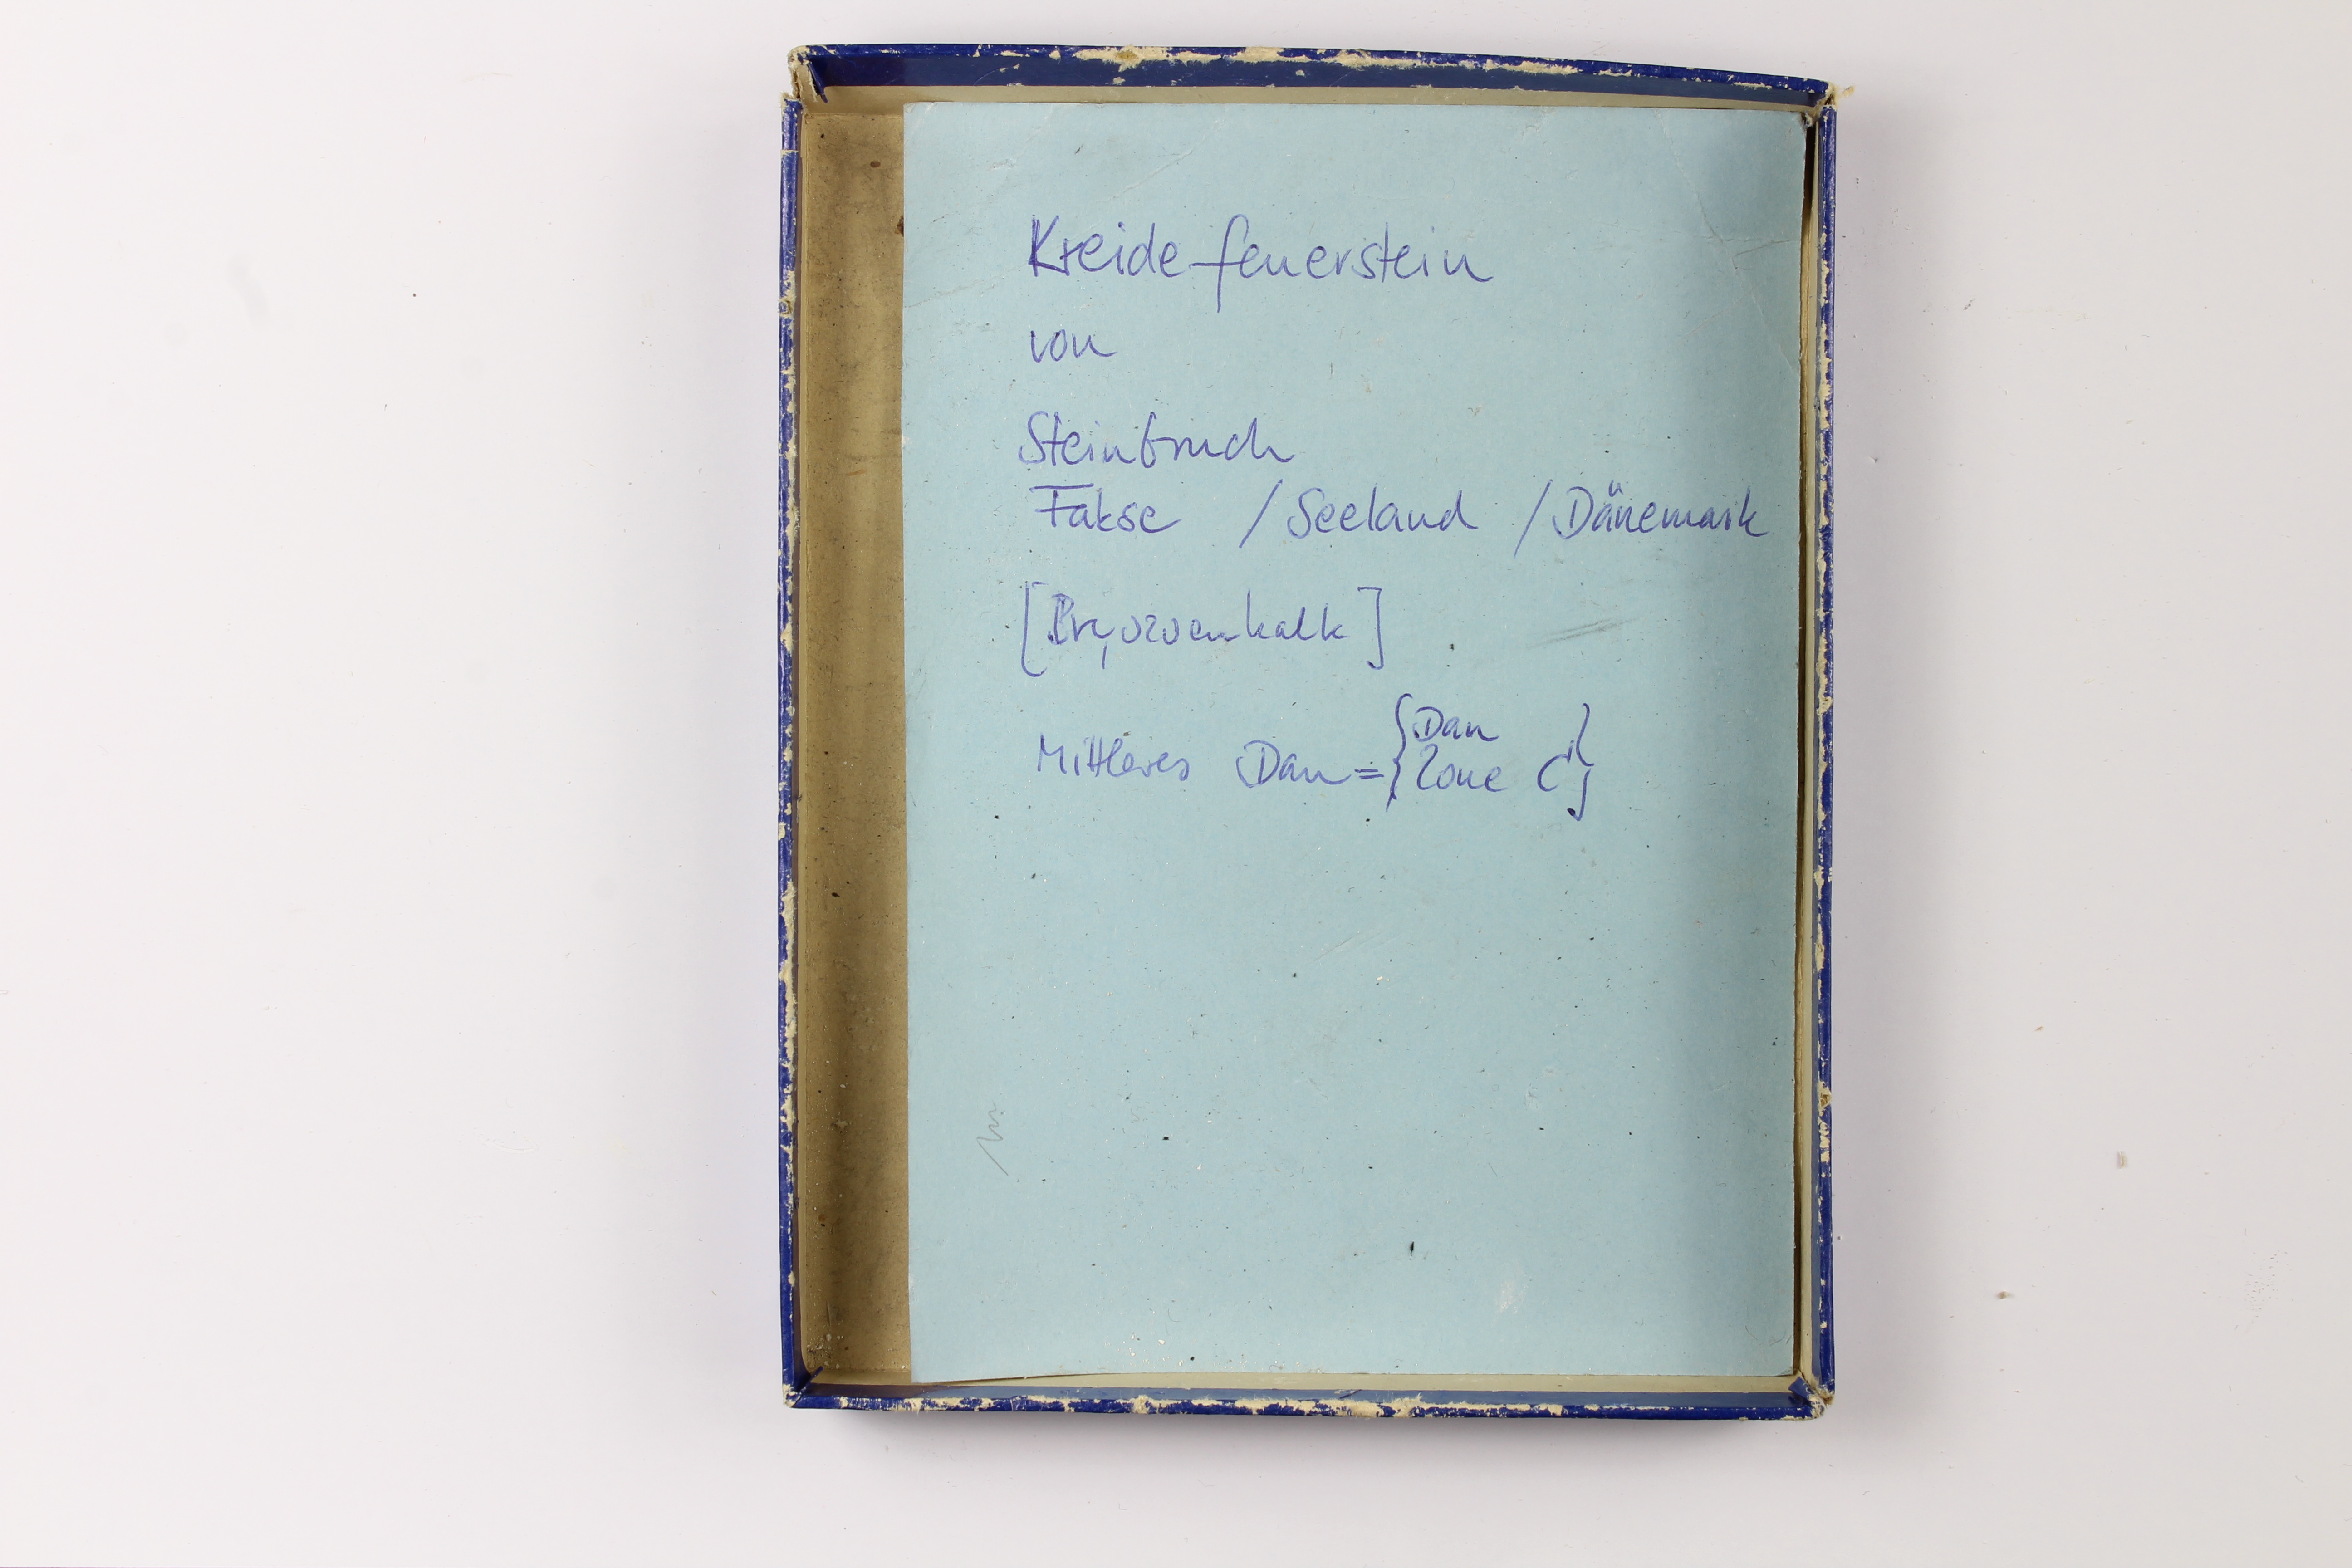 Kreide-feuerstein
von
Steinbruch
Fakse / Seeland / Dänemark
[Bryozoenkalk]
Mittleres Dan = { Dan
Zone C }